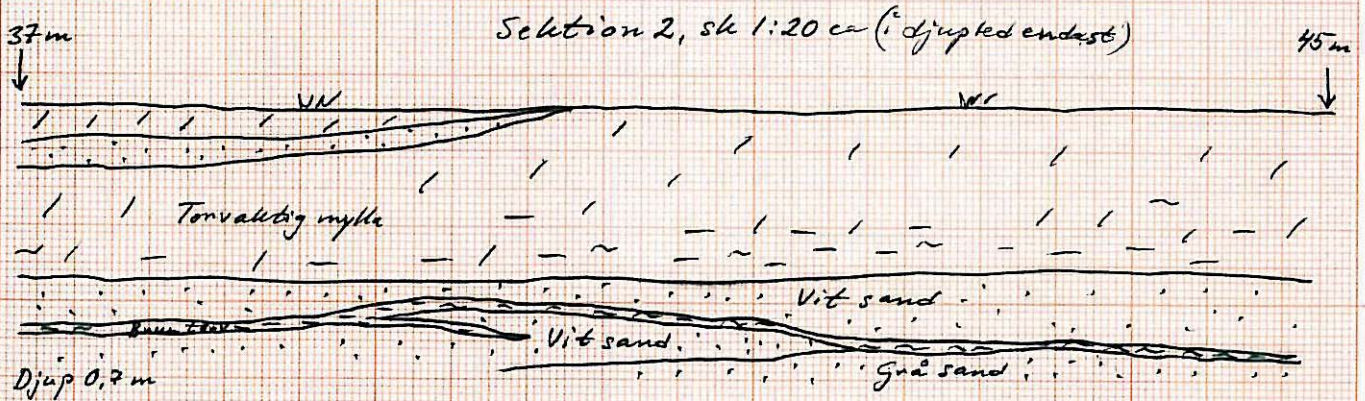 Sektion 2, sk 1:20 ca (i djupled endast)
37 m
45 m
Torvaktig mylla
Vit sand
Brun torv
Vit sand
Grå sand
Djup 0,7 m